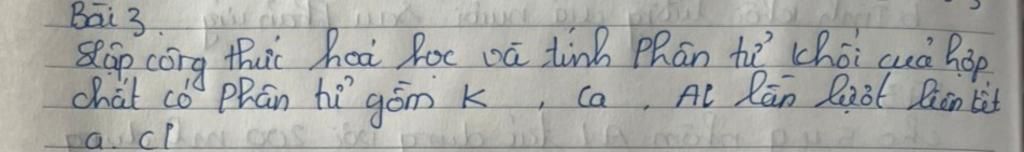 Bài 3.
Lập công thức hoá học và tính phân tử khối của hợp
chất có phân tử gồm K , Ca , Al lần lượt liên kết
a. Cl